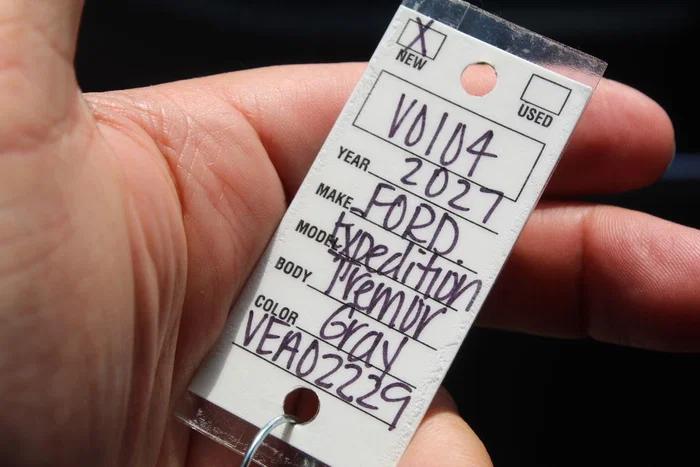 X
NEW
USED
V0104
YEAR 2027
MAKE FORD.
MODEL Expedition
BODY Tremor
COLOR Gray
VEA02229